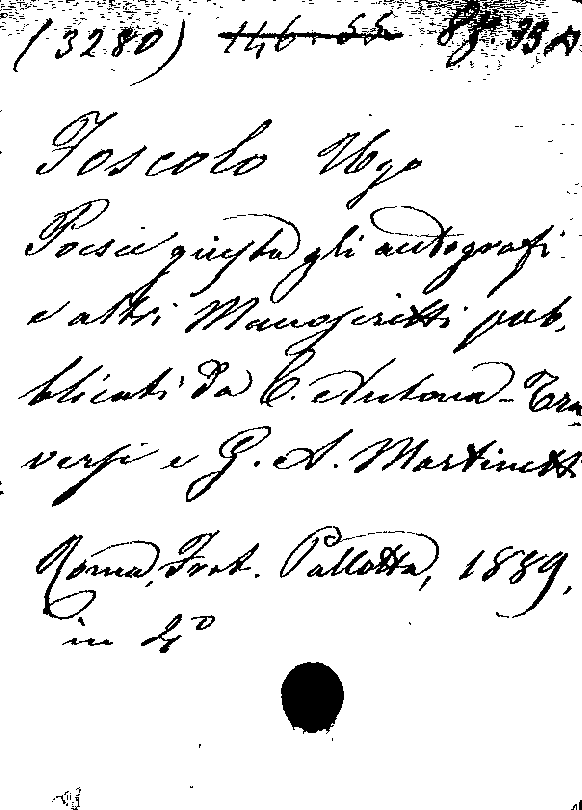 (3280) 146.55
Foscolo Ugo
Poesie giusta gli autografi
e altri Manoscritti pub,
blicati da C. Antona-Tra
versi e G. A. Martinetti
Roma, Frat. Pallotta, 1889,
in 4°